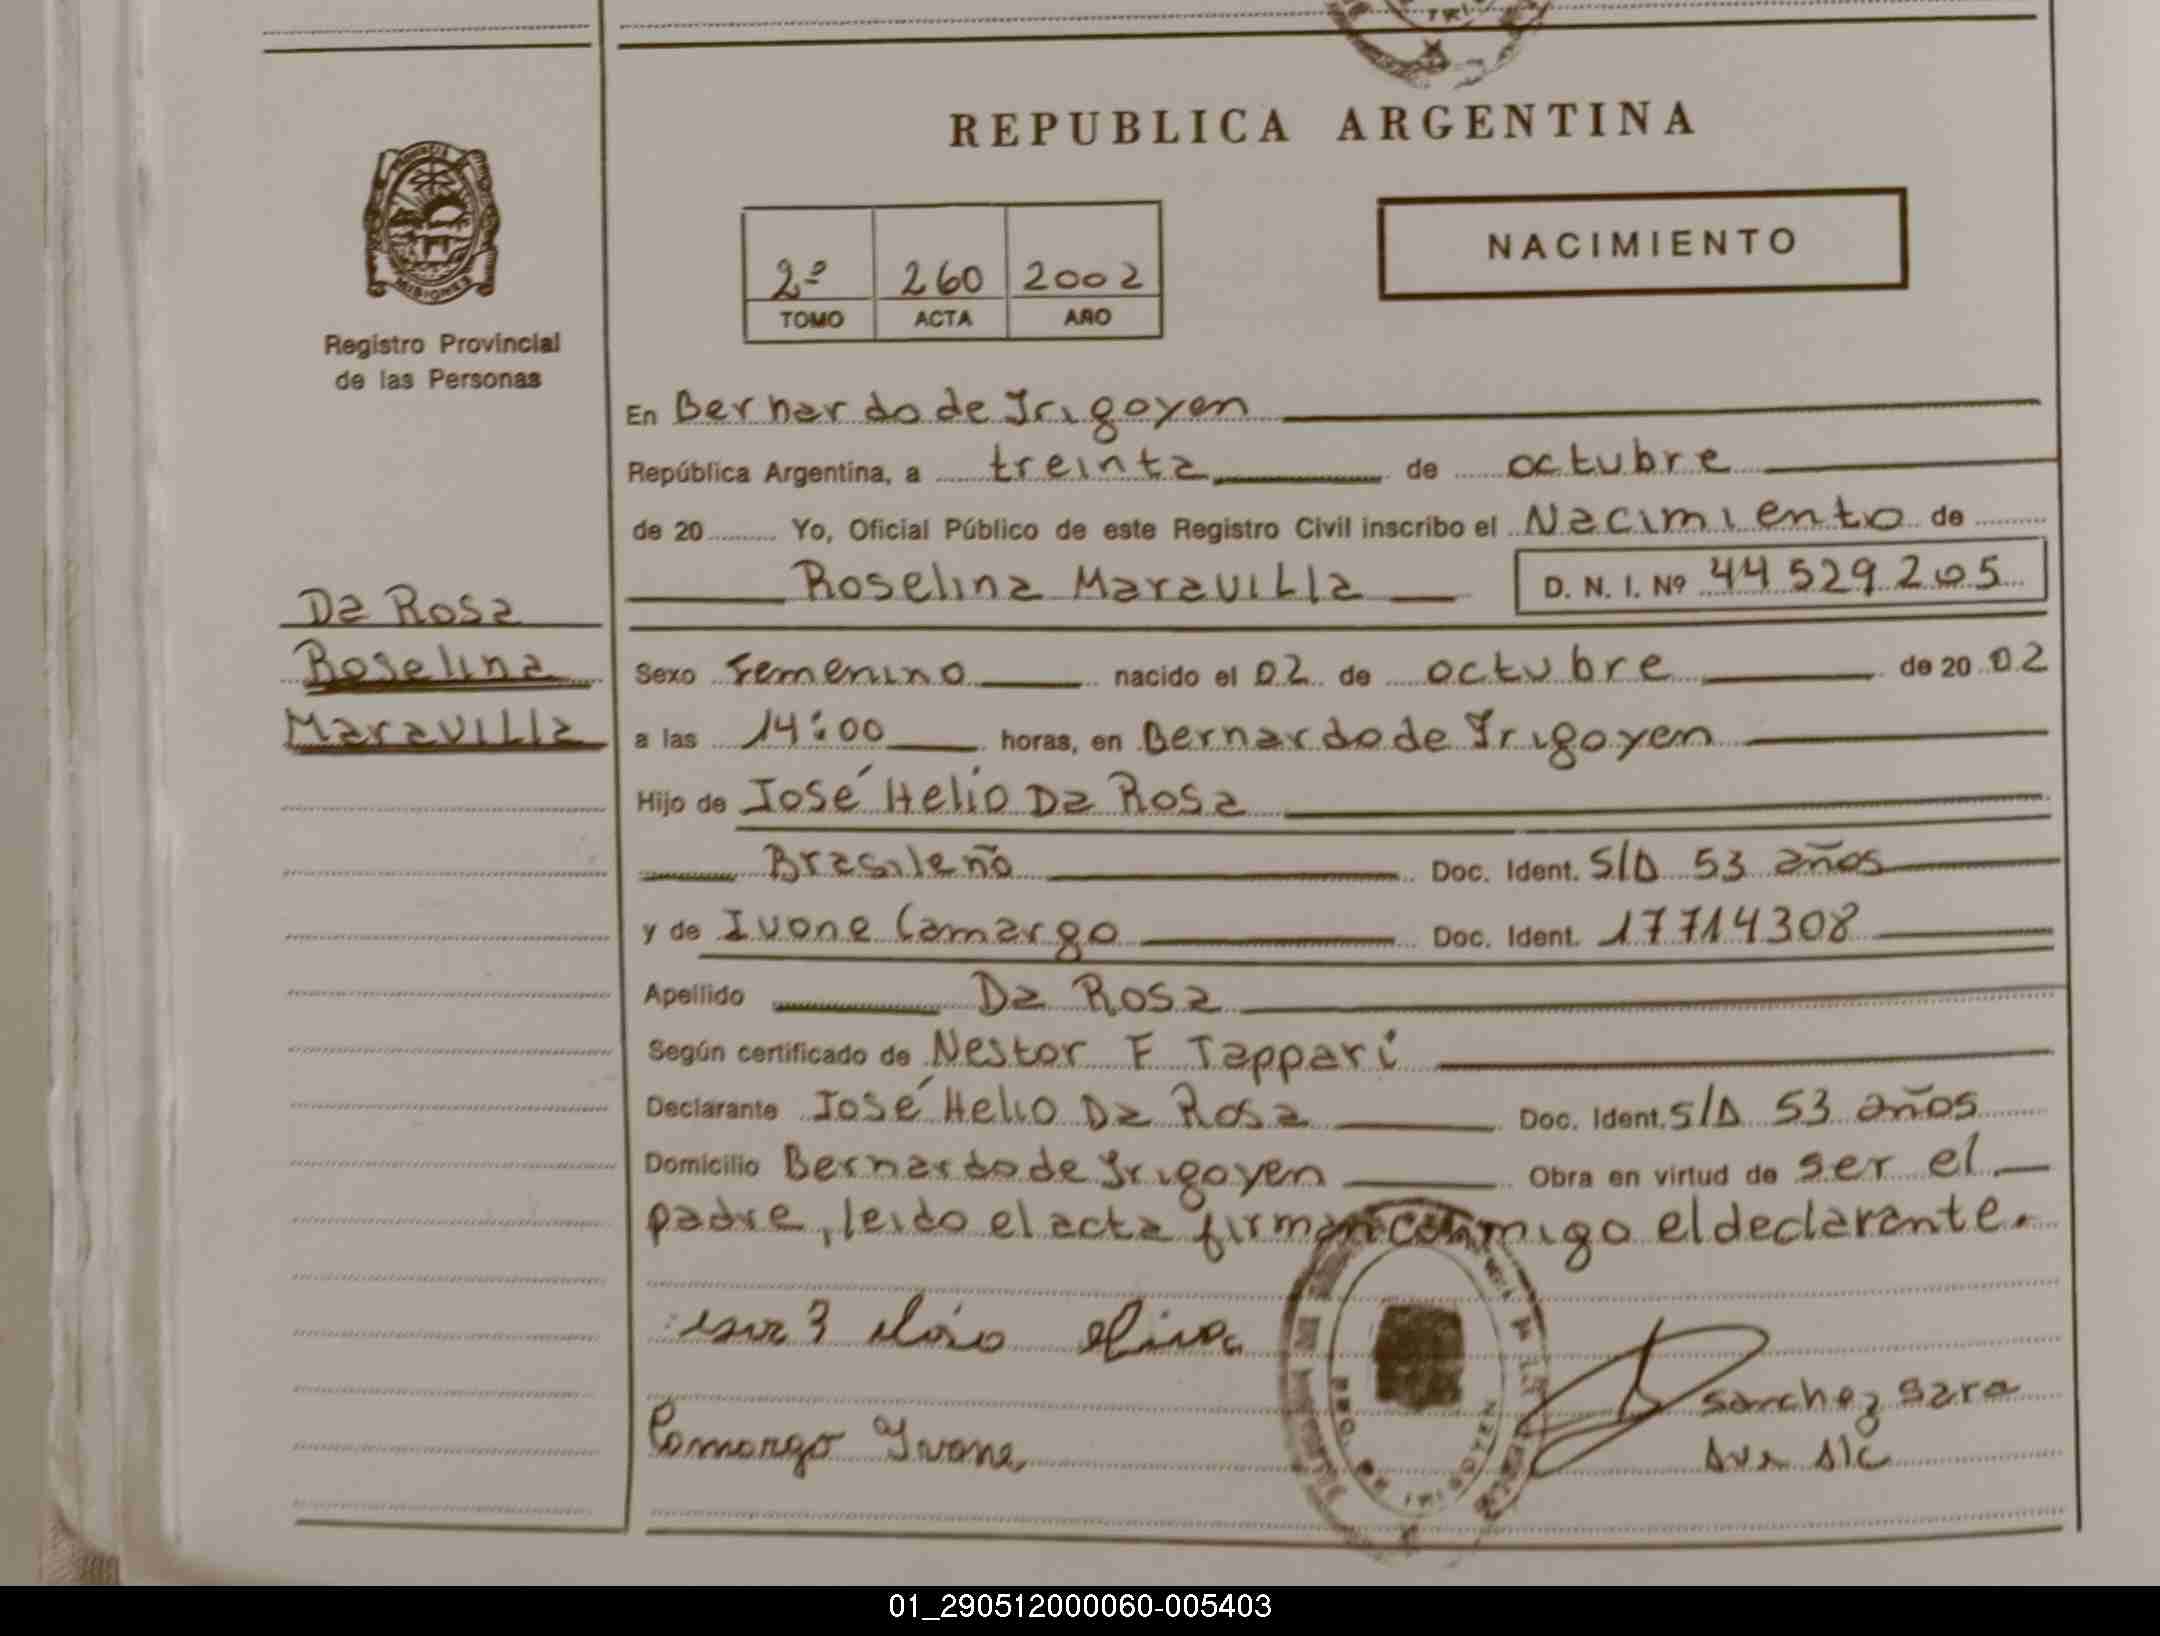 REPUBLICA ARGENTINA
NACIMIENTO
2º 260 2002
TOMO ACTA AÑO
MISIONES
Registro Provincial
de las Personas
Da Rosa
Roselina
Maravilla
En Bernardo de Irigoyen
República Argentina, a treinta de octubre
de 20 Yo, Oficial Público de este Registro Civil inscribo el Nacimiento de
Roselina Maravilla D. N. I. Nº 44 529 205
Sexo Femenino nacido el 02 de octubre de 20 02
a las 14:00 horas, en Bernardo de Irigoyen
Hijo de José Helio Da Rosa
Brasileño Doc. Ident. S/D 53 años
y de Ivone Camargo Doc. Ident. 17714308
Apellido Da Rosa
Según certificado de Nestor F Tappari
Declarante José Helio Da Rosa Doc. Ident. S/D 53 años
Domicilio Bernardo de Irigoyen Obra en virtud de ser el
padre, leido el acta firman conmigo el declarante.
Camargo Ivone
Sanchez Sara
01_290512000060-005403